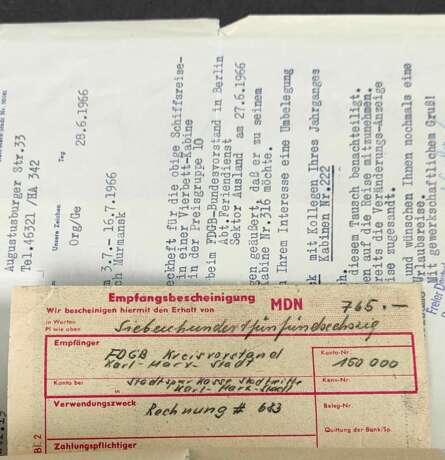 Augustusburger Str.33
Tel.46321 /HA 342
Unsere Zeichen Tag
Org/Ge 28.6.1966
m 3.7.- 16.7.1966
ch Murmansk
eckheft für die obige Schiffsreise-
in einer Vierbett-Kabine
n der Kreisgruppe 10
beim FDGB-Bundesvorstand in Berlin
Abt.Feriendienst
Sektor Ausland am 27.6.1966
gen geäußert, daß er zu seinem
abine Nr.316 möchte.
n Ihrem Interesse eine Umbelegung
k mit Kollegen Ihres Jahrganges
Kabinen Nr.222
diesem Tausch benachteiligt.
en auf die Reise mitzunehmen.
reits die Veränderungs-Anzeige
ise zugesandt.
und wünschen Ihnen nochmals eine
Urlaubsreise.
Mit gewerkschaftlichem Gruß!
Freier
Empfangsbescheinigung
Wir bescheinigen hiermit den Erhalt von MDN 765.-
in Worten
Pf wie oben Siebenhundertfünfundsechzig
Empfänger Konto-Nr.
FDGB Kreisvorstand
Karl-Marx-Stadt 150 000
Konto bei Stadtsparkasse Stadtmitte Kenn-Nr.
in Karl-Marx-Stadt
Verwendungszweck Beleg-Nr.
Rechnung # 683
Quittung der Bank/Sp.
Zahlungspflichtiger
Bl. 2